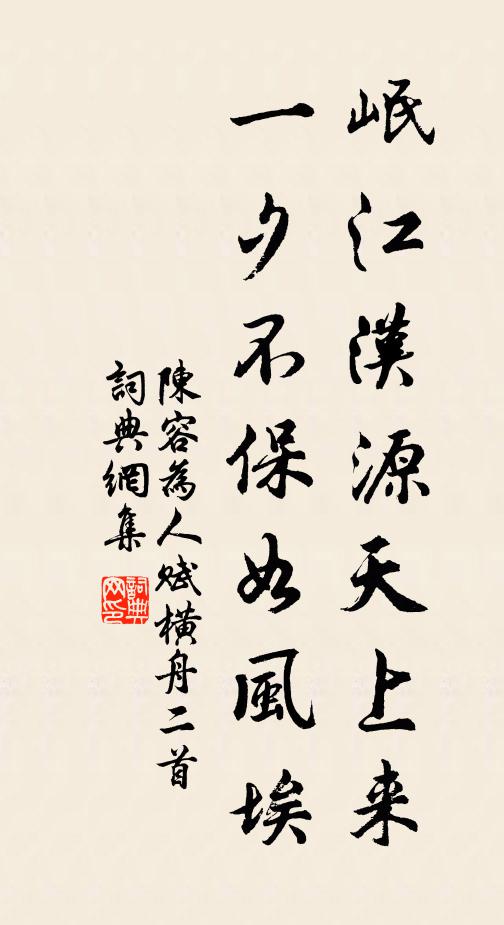 岷江漢源天上来
一夕不保如風埃
陳容為人賦橫舟二首
詞典網集
詞典網印